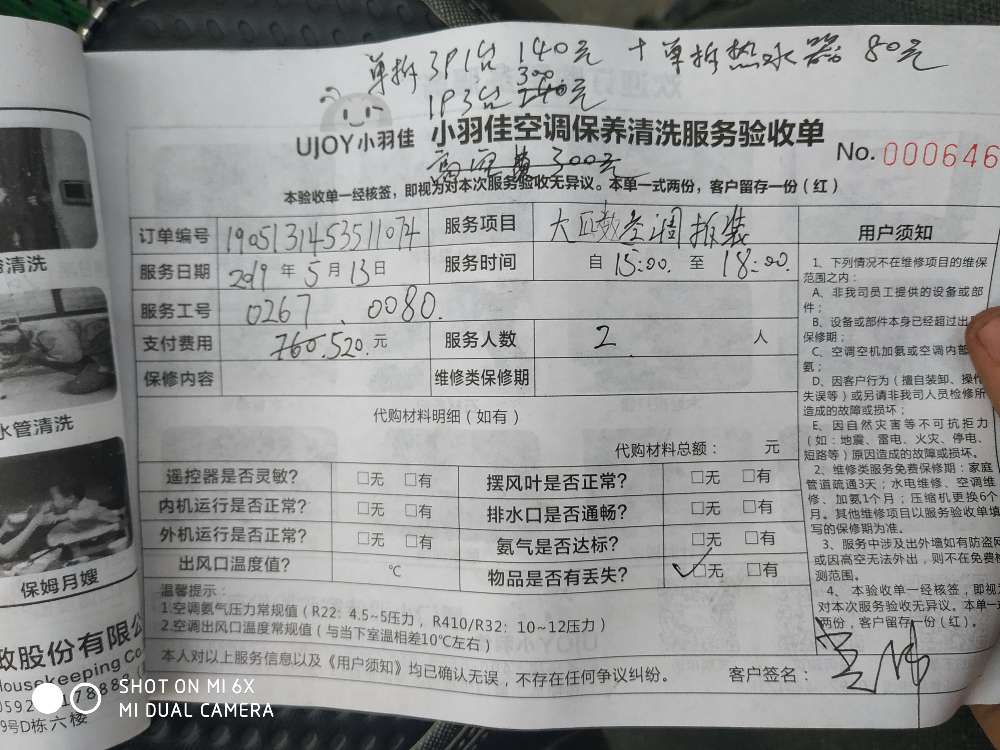 单拆3P1台 140元 + 单拆热水器 80元
300
1P3台 240元
UJOY小羽佳 小羽佳空调保养清洗服务验收单
高空费300元
No. 000646
本验收单一经核签，即视为对本次服务验收无异议。本单一式两份，客户留存一份（红）
订单编号 1905131453511074 服务项目 大匹数空调拆装
服务日期 2019 年 5 月 13 日 服务时间 自 15:00. 至 18:00.
服务工号 0267 . 0080.
支付费用 760.520. 元 服务人数 2 人
保修内容 维修类保修期
代购材料明细（如有）
代购材料总额： 元
遥控器是否灵敏？ □无 □有 摆风叶是否正常？ □无 □有
内机运行是否正常？ □无 □有 排水口是否通畅？ □无 □有
外机运行是否正常？ □无 □有 氨气是否达标？ □无 □有
出风口温度值？ ℃ 物品是否有丢失？ ✓□无 □有
温馨提示：
1.空调氨气压力常规值（R22：4.5~5压力，R410/R32：10~12压力）
2.空调出风口温度常规值（与当下室温相差10℃左右）
本人对以上服务信息以及《用户须知》均已确认无误，不存在任何争议纠纷。 客户签名：
用户须知
1、下列情况不在维修项目的维保
范围之内：
A、非我司员工提供的设备或部
件；
B、设备或部件本身已经超过出
保修期；
C、空调空机加氨或空调内部
氨；
D、因客户行为（擅自装卸、操作
失误等）或另请非我司人员检修所
造成的故障或损坏；
E、因自然灾害等不可抗拒力
（如：地震、雷电、火灾、停电、
短路等）原因造成的故障或损坏。
2、维修类服务免费保修期：家庭
管道疏通3天；水电维修、空调维
修、加氨1个月；压缩机更换6个
月。其他维修项目以服务验收单填
写的保修期为准。
3、服务中涉及出外墙如有防盗网
或因高空无法外出，则不在免费检
测范围。
4、本验收单一经核签，即视为
对本次服务验收无异议。本单一式
两份，客户留存一份（红）。
清洗
水管清洗
保姆月嫂
政股份有限公
Housekeeping Co
0592
9号D栋六楼
SHOT ON MI 6X
MI DUAL CAMERA